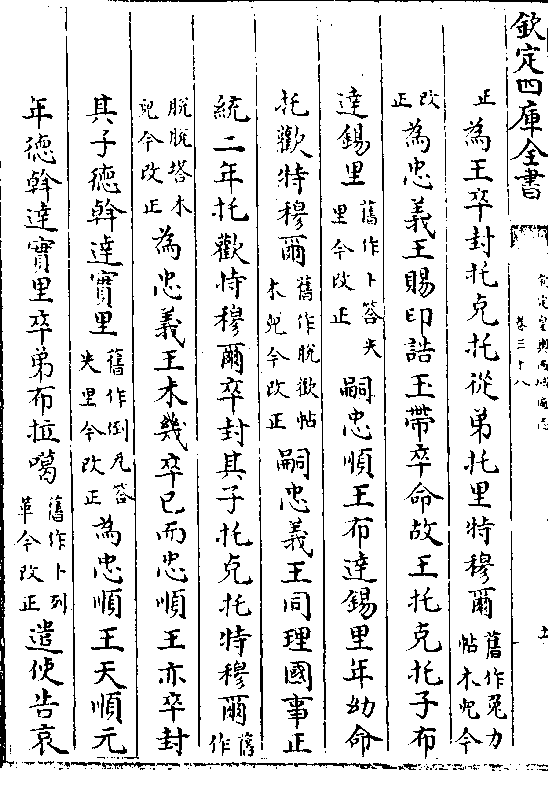 欽定四庫全書
欽定皇輿西域圖志
卷三十八
正為王卒封托克托從弟托里特穆爾舊作兔力帖木兒今
改正為忠義王賜印誥玉帶卒命故王托克托子布
達錫里舊作卜答失里今改正嗣忠順王布達錫里年幼命
托歡特穆爾舊作脫歡帖木兒今改正嗣忠義王同理國事正
統二年托歡特穆爾卒封其子托克托特穆爾舊作
脫脫塔木兒今改正為忠義王未幾卒已而忠順王亦卒封
其子德斡達實里舊作倒瓦答失里今改正為忠順王天順元
年德斡達實里卒弟布拉噶舊作卜列革今改正遣使告哀